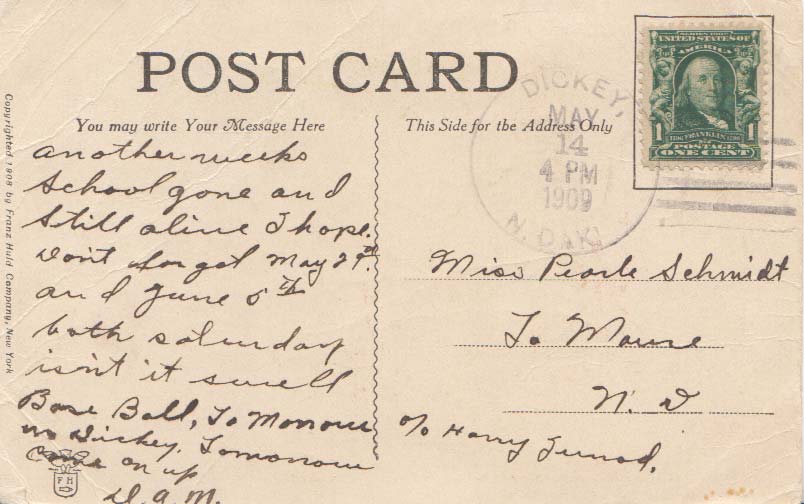 POST CARD
You may write Your Message Here
another weeks
school gone and
still alive I hope.
Don't forget May 29th
and June 5th
both saturday
isn't it swell
Base Ball, To Morrow
Dickey. Tomorrow
Come on up
D.A.M.
This Side for the Address Only
Miss Pearle Schmidt
La Moure
N. D
c/o Harry
DICKEY,
MAY
14
4 PM
1909
N. DAK.
SERIES 1902
UNITED STATES OF
AMERICA
1 FRANKLIN 1
POSTAGE
ONE CENT
Copyrighted 1908 by Franz Huld Company, New York
FH